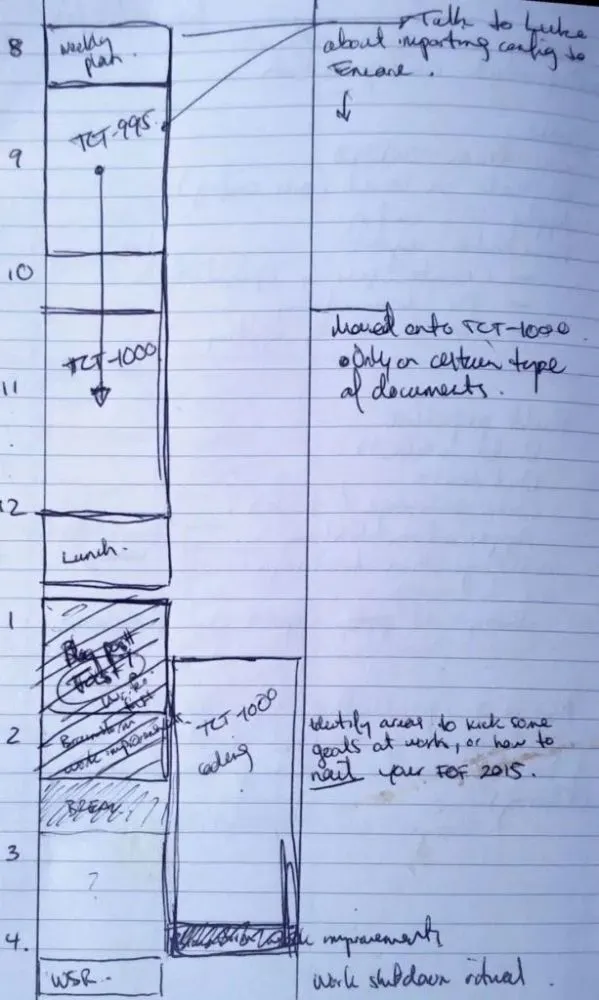 8
weekly
plan.
Talk to Luke
about importing config to
TCT-995
9
10
TCT-1000
Moved onto TCT-1000
• Only on certain type
of documents.
11
12
Lunch.
1
Blog post
2
Brainstorm
work improvements
TCT-1000
coding
identify areas to kick some
goals at work, or how to
nail your FOF 2015.
BREAK
3
?
4.
improvements
WSR.
work shutdown ritual.